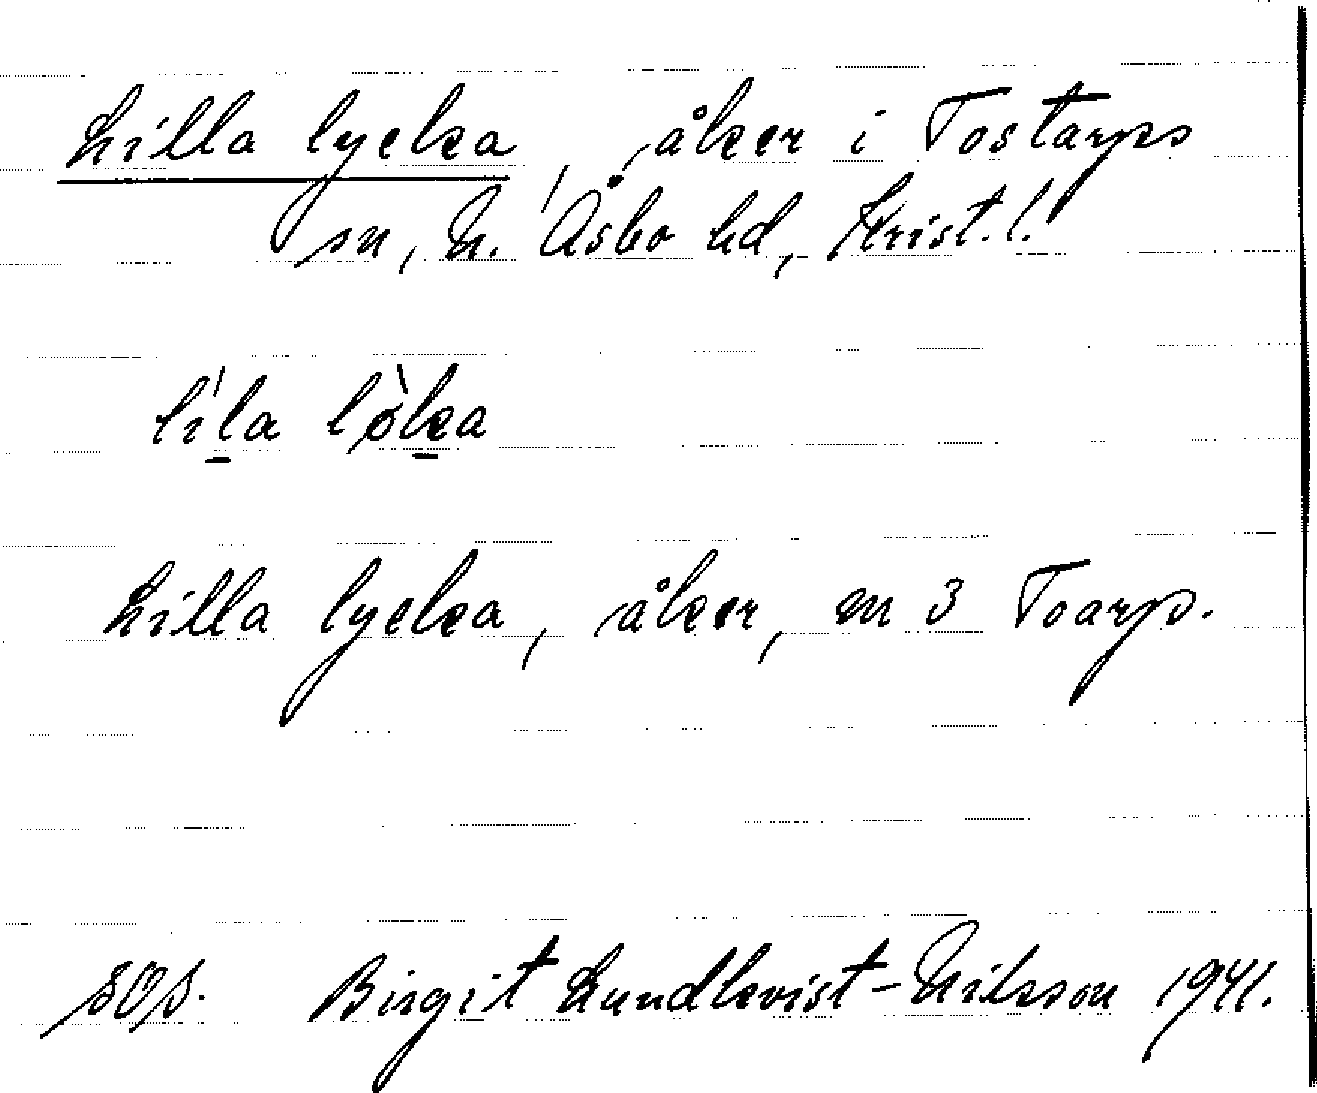 Lilla lycka, åker i Tostarps
sn, N. Åsbo hd, Krist. l.
lí̲la lø̀k̲a
Lilla lycka, åker, m 3 Toarp.
Birgit Lundkvist-Nilsson 1941.